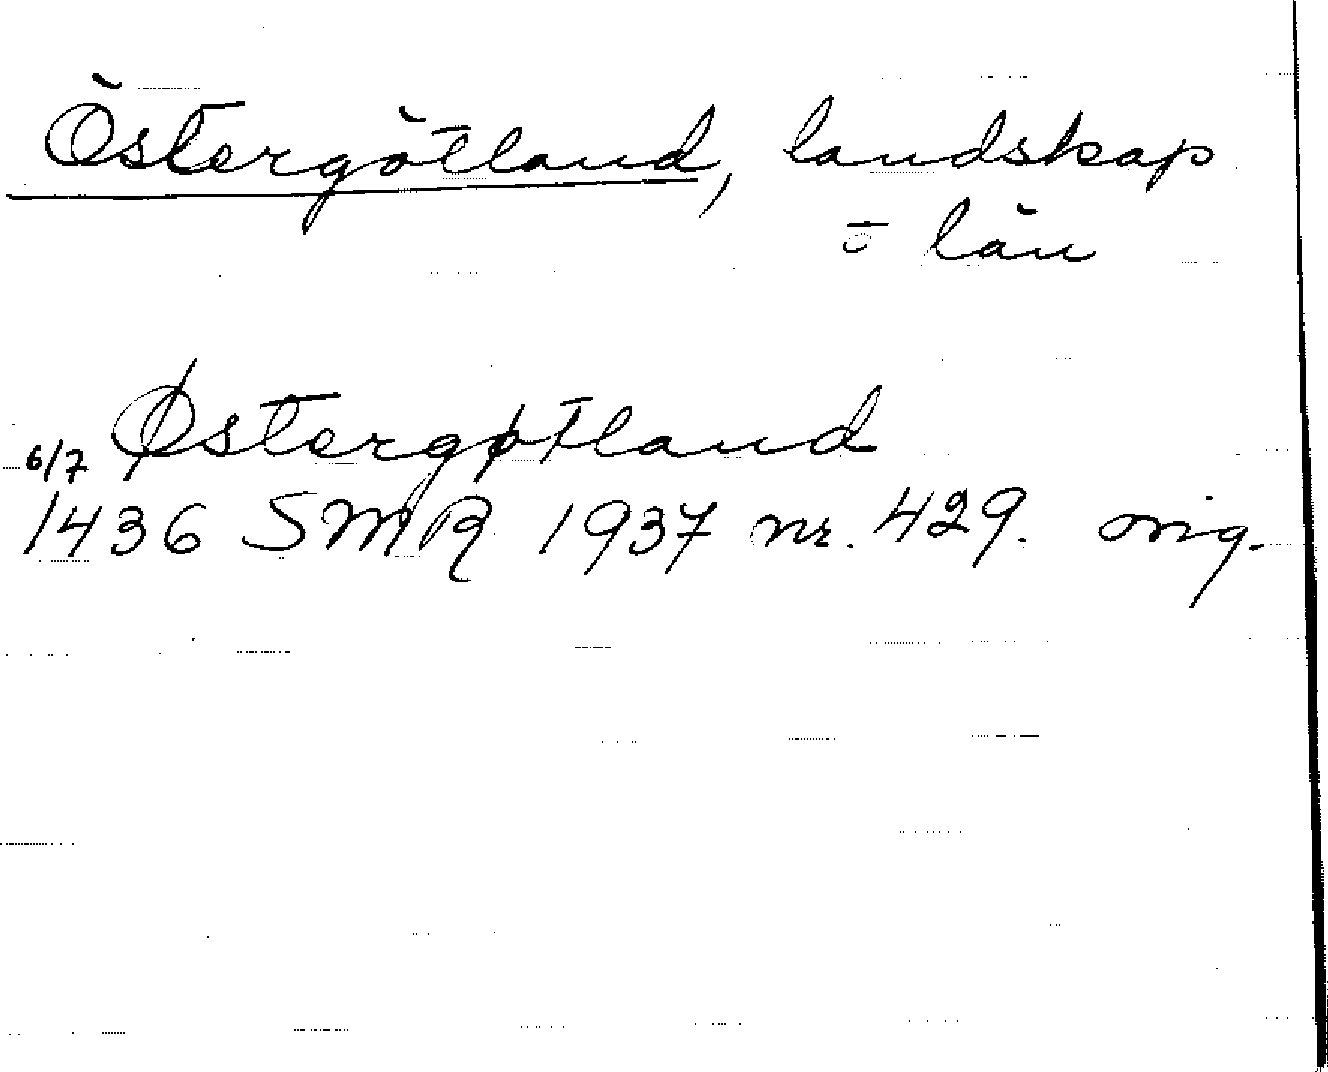 Östergötland, landskap
o län
Østergøtland
6/7 1436 SMR 1937 nr. 429. orig.